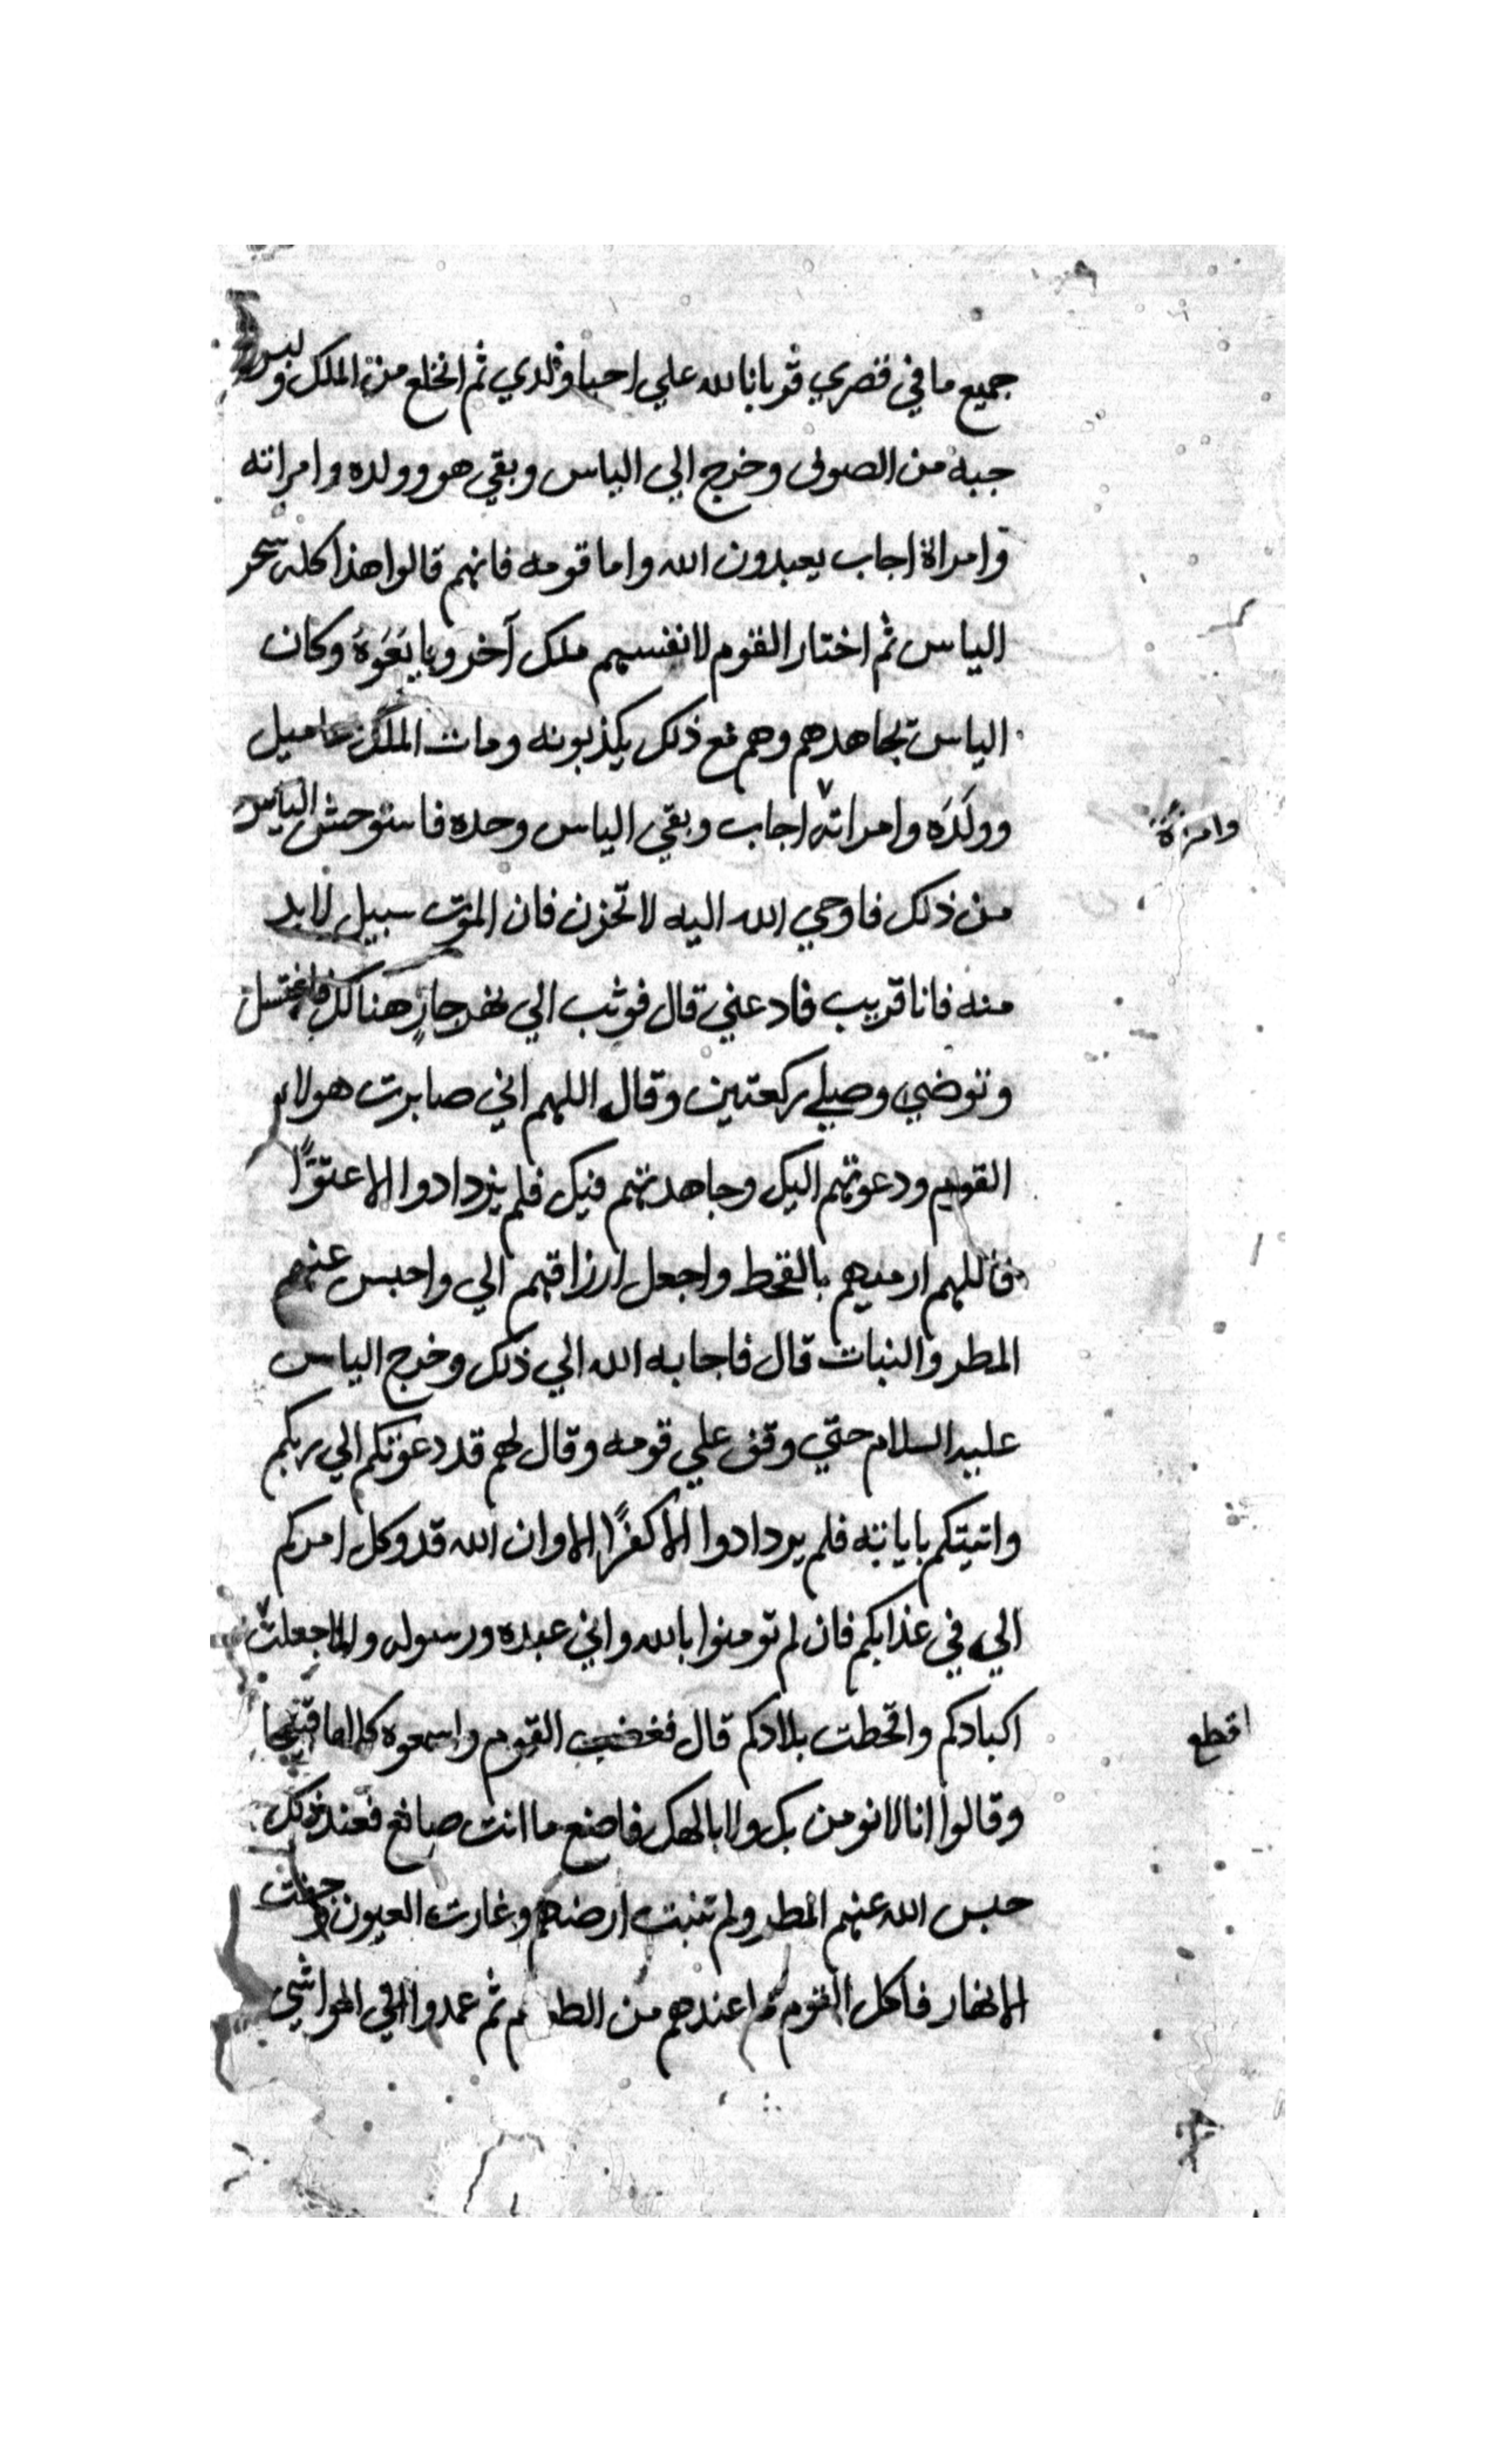 جميع ما في قصري قربانا لله علي احيا ولدي ثم انخلع من الملك ولبس
جبه من الصوف وخرج الي الياس وبقي هو وولده وامراته
وامراة اجاب يعبدون الله واما قومه فانهم قالوا هذا كله سحر
الياس ثم اختار القوم لانفسهم ملك آخر وبايَعَوهُ وكان
الياس يجاهدهم وهم مع ذلك يكذبونه ومات الملك عاميل
وولَدَه وامراته اجاب وبقي الياس وحده فاستوحش الياس
وامراة
من ذلك فاوحي الله اليه لا تحزن فان الموت سبيل لابد
منه فانا قريب فادعني قال فوثب الي نهر جارٍ هنالك فاغتسل
وتوضي وصلي ركعتين وقال اللهم اني صابرت هولاء
القوم ودعوتهم اليك وجاهدتهم فيك فلم يزدادوا الا عتوًّا
فاللهم ارميهم بالقحط واجعل ارزاقهم الي واحبس عنهم
المطر والنبات قال فاجابه الله الي ذلك وخرج الياس
عليه السلام حتي وقف علي قومه وقال لهم قد دعوتكم الي ربكم
واتيتكم باياته فلم يردادوا الا كفرًا الا وان الله قد وكل امركم
الي في عذابكم فان لم تومنوا بالله واني عبده ورسوله والا جعلت
اكبادكم واقحطت بلادكم قال فغضب القوم واسمعوه كلاما قبيحا
اقطع
وقالوا انا لا نومن بك ولا بالهك فاصنع ما انت صانع فعند ذلك
حبس الله عنهم المطر ولم تنبت ارضهم وغارت العيون وجفت
الانهار فاكل القوم ما عندهم من ثم عمدوا الي المواشي